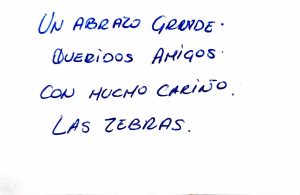 UN ABRAZO GRANDE.
QUERIDOS AMIGOS.
CON MUCHO CARIÑO.
LAS ZEBRAS.